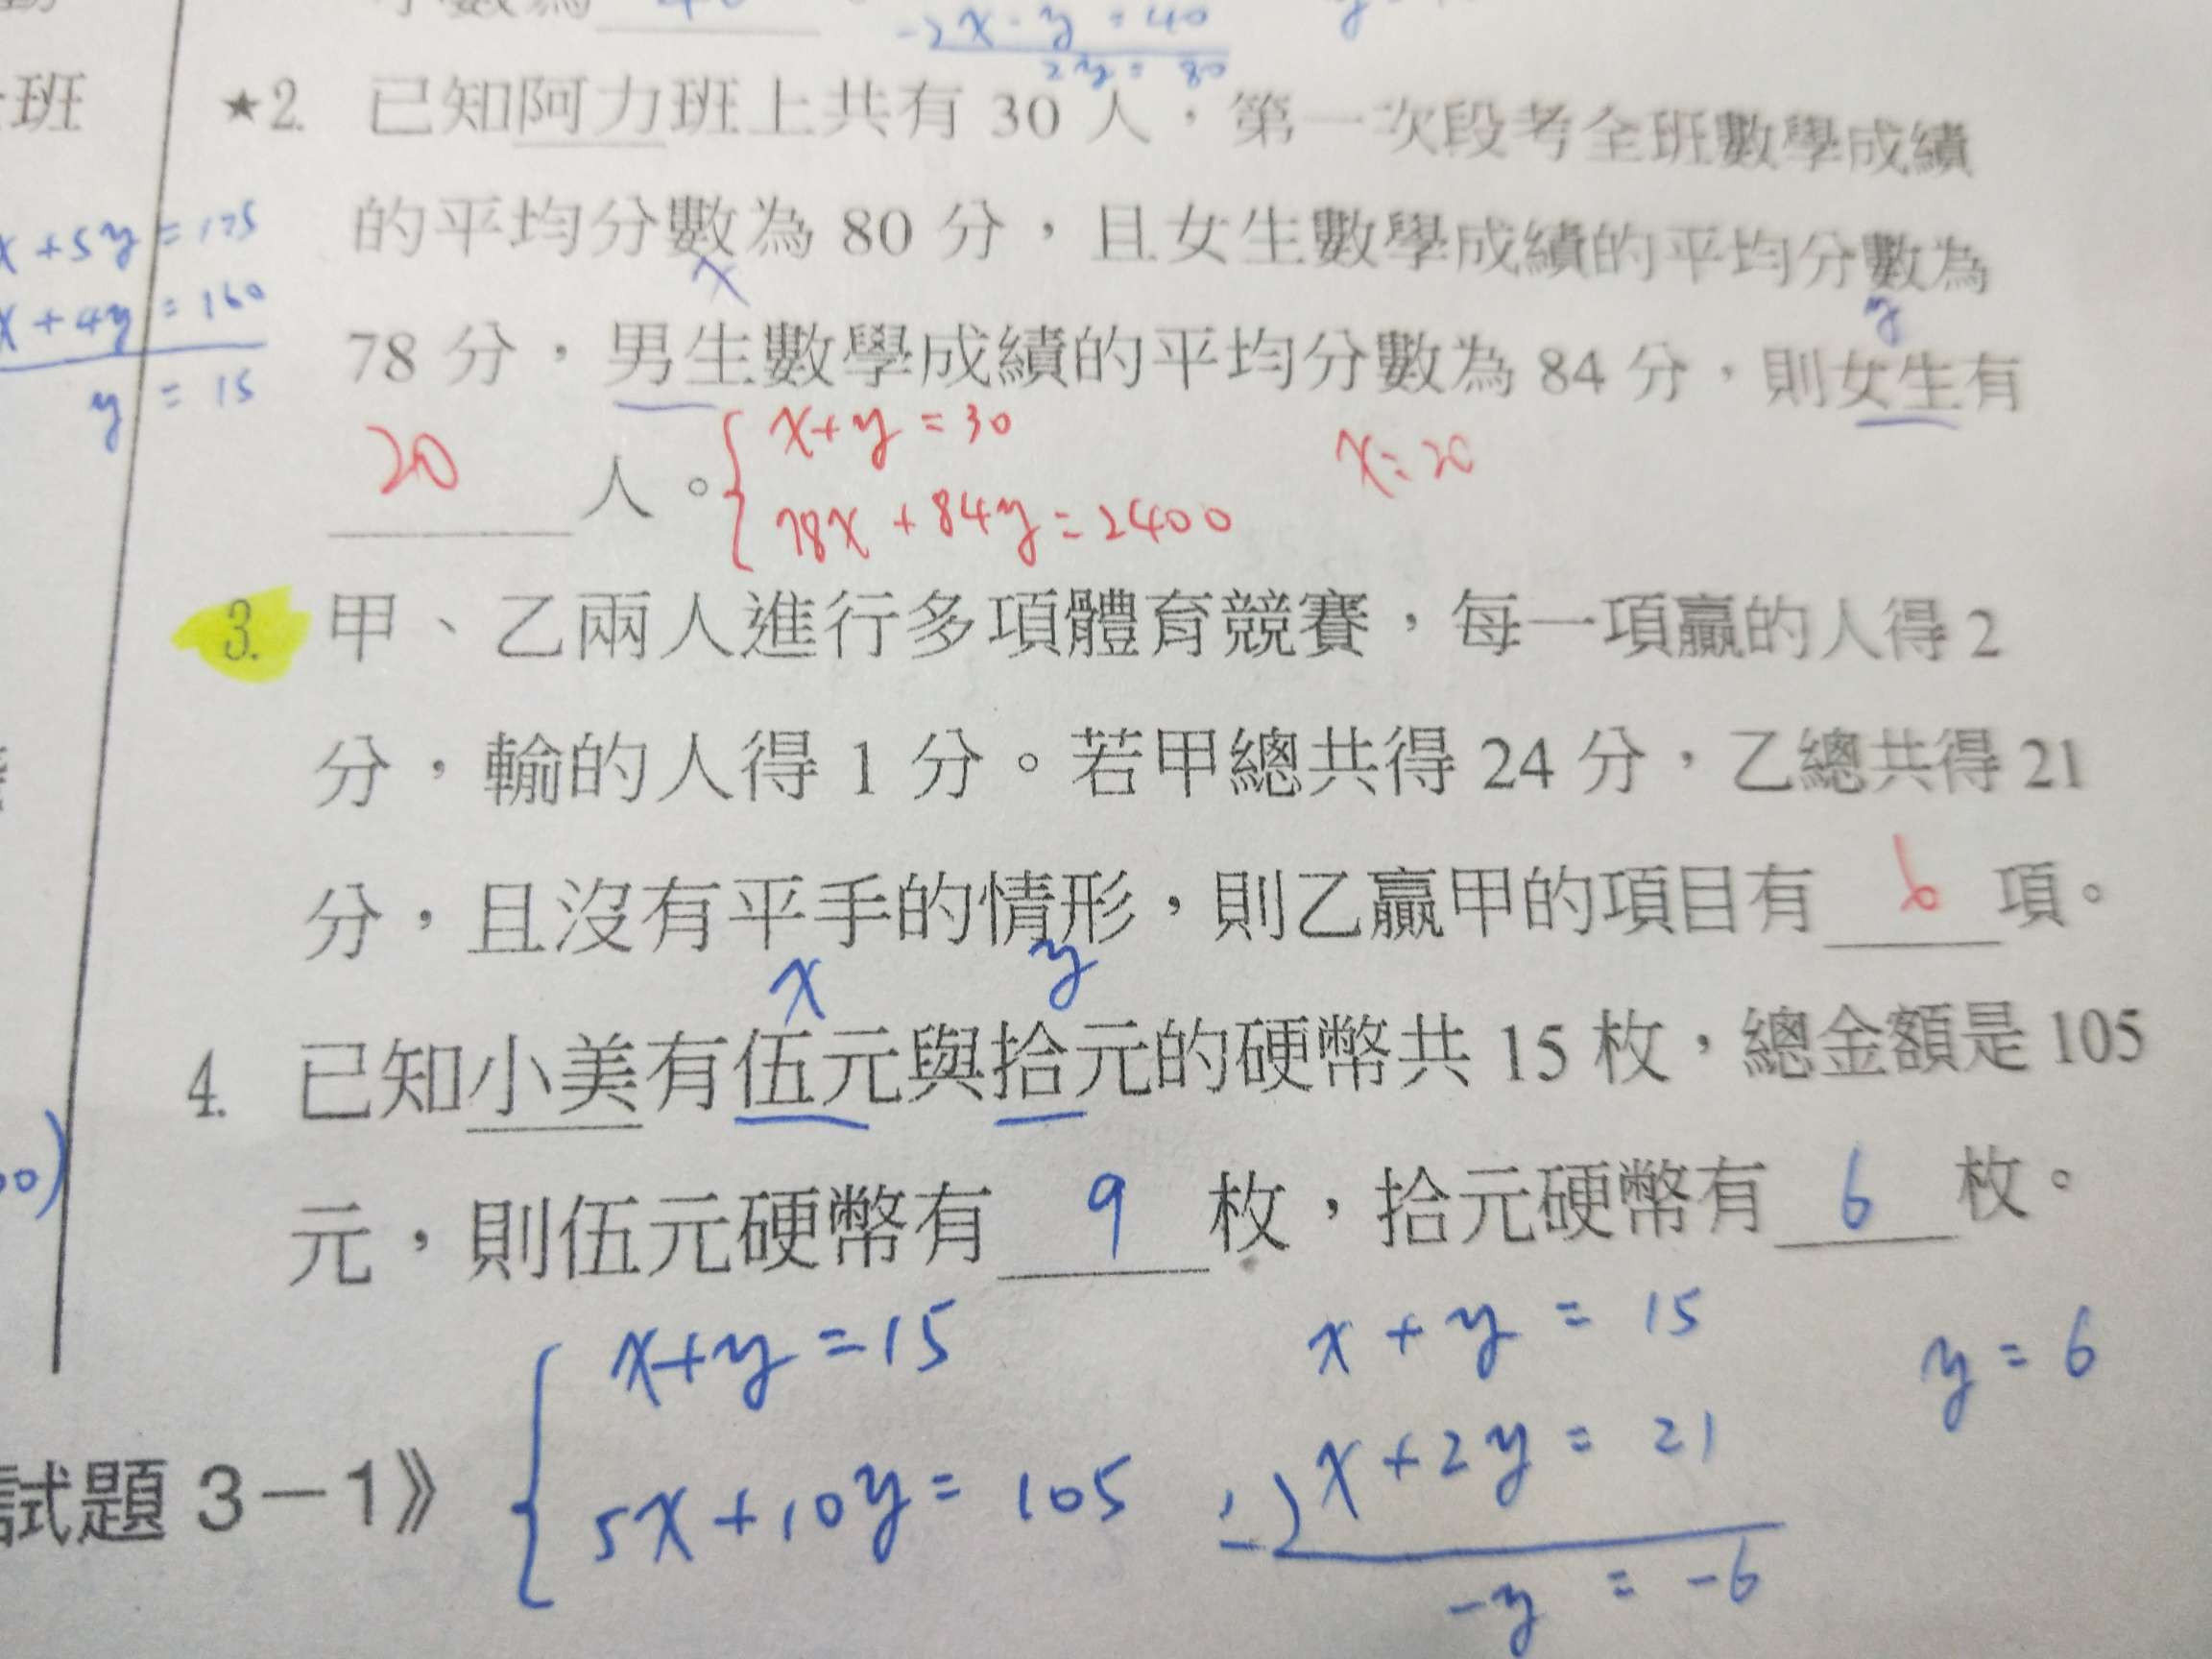 -2x-y=40
2y=80
班
★2. 已知阿力班上共有 30 人,第一次段考全班數學成績
x+5y=175
的平均分數為 80 分,且女生數學成績的平均分數為
x+4y=160
x
y
78 分,男生數學成績的平均分數為 84 分,則女生有
y=15
20 人。
x+y=30
x=20
78x+84y=2400
3. 甲、乙兩人進行多項體育競賽,每一項贏的人得 2
分,輸的人得 1 分。若甲總共得 24 分,乙總共得 21
分,且沒有平手的情形,則乙贏甲的項目有 6 項。
x y
4. 已知小美有伍元與拾元的硬幣共 15 枚,總金額是 105
元,則伍元硬幣有 9 枚,拾元硬幣有 6 枚。
x+y=15
x+y=15
y=6
5x+10y=105
-)x+2y=21
-y=-6
試題 3-1》